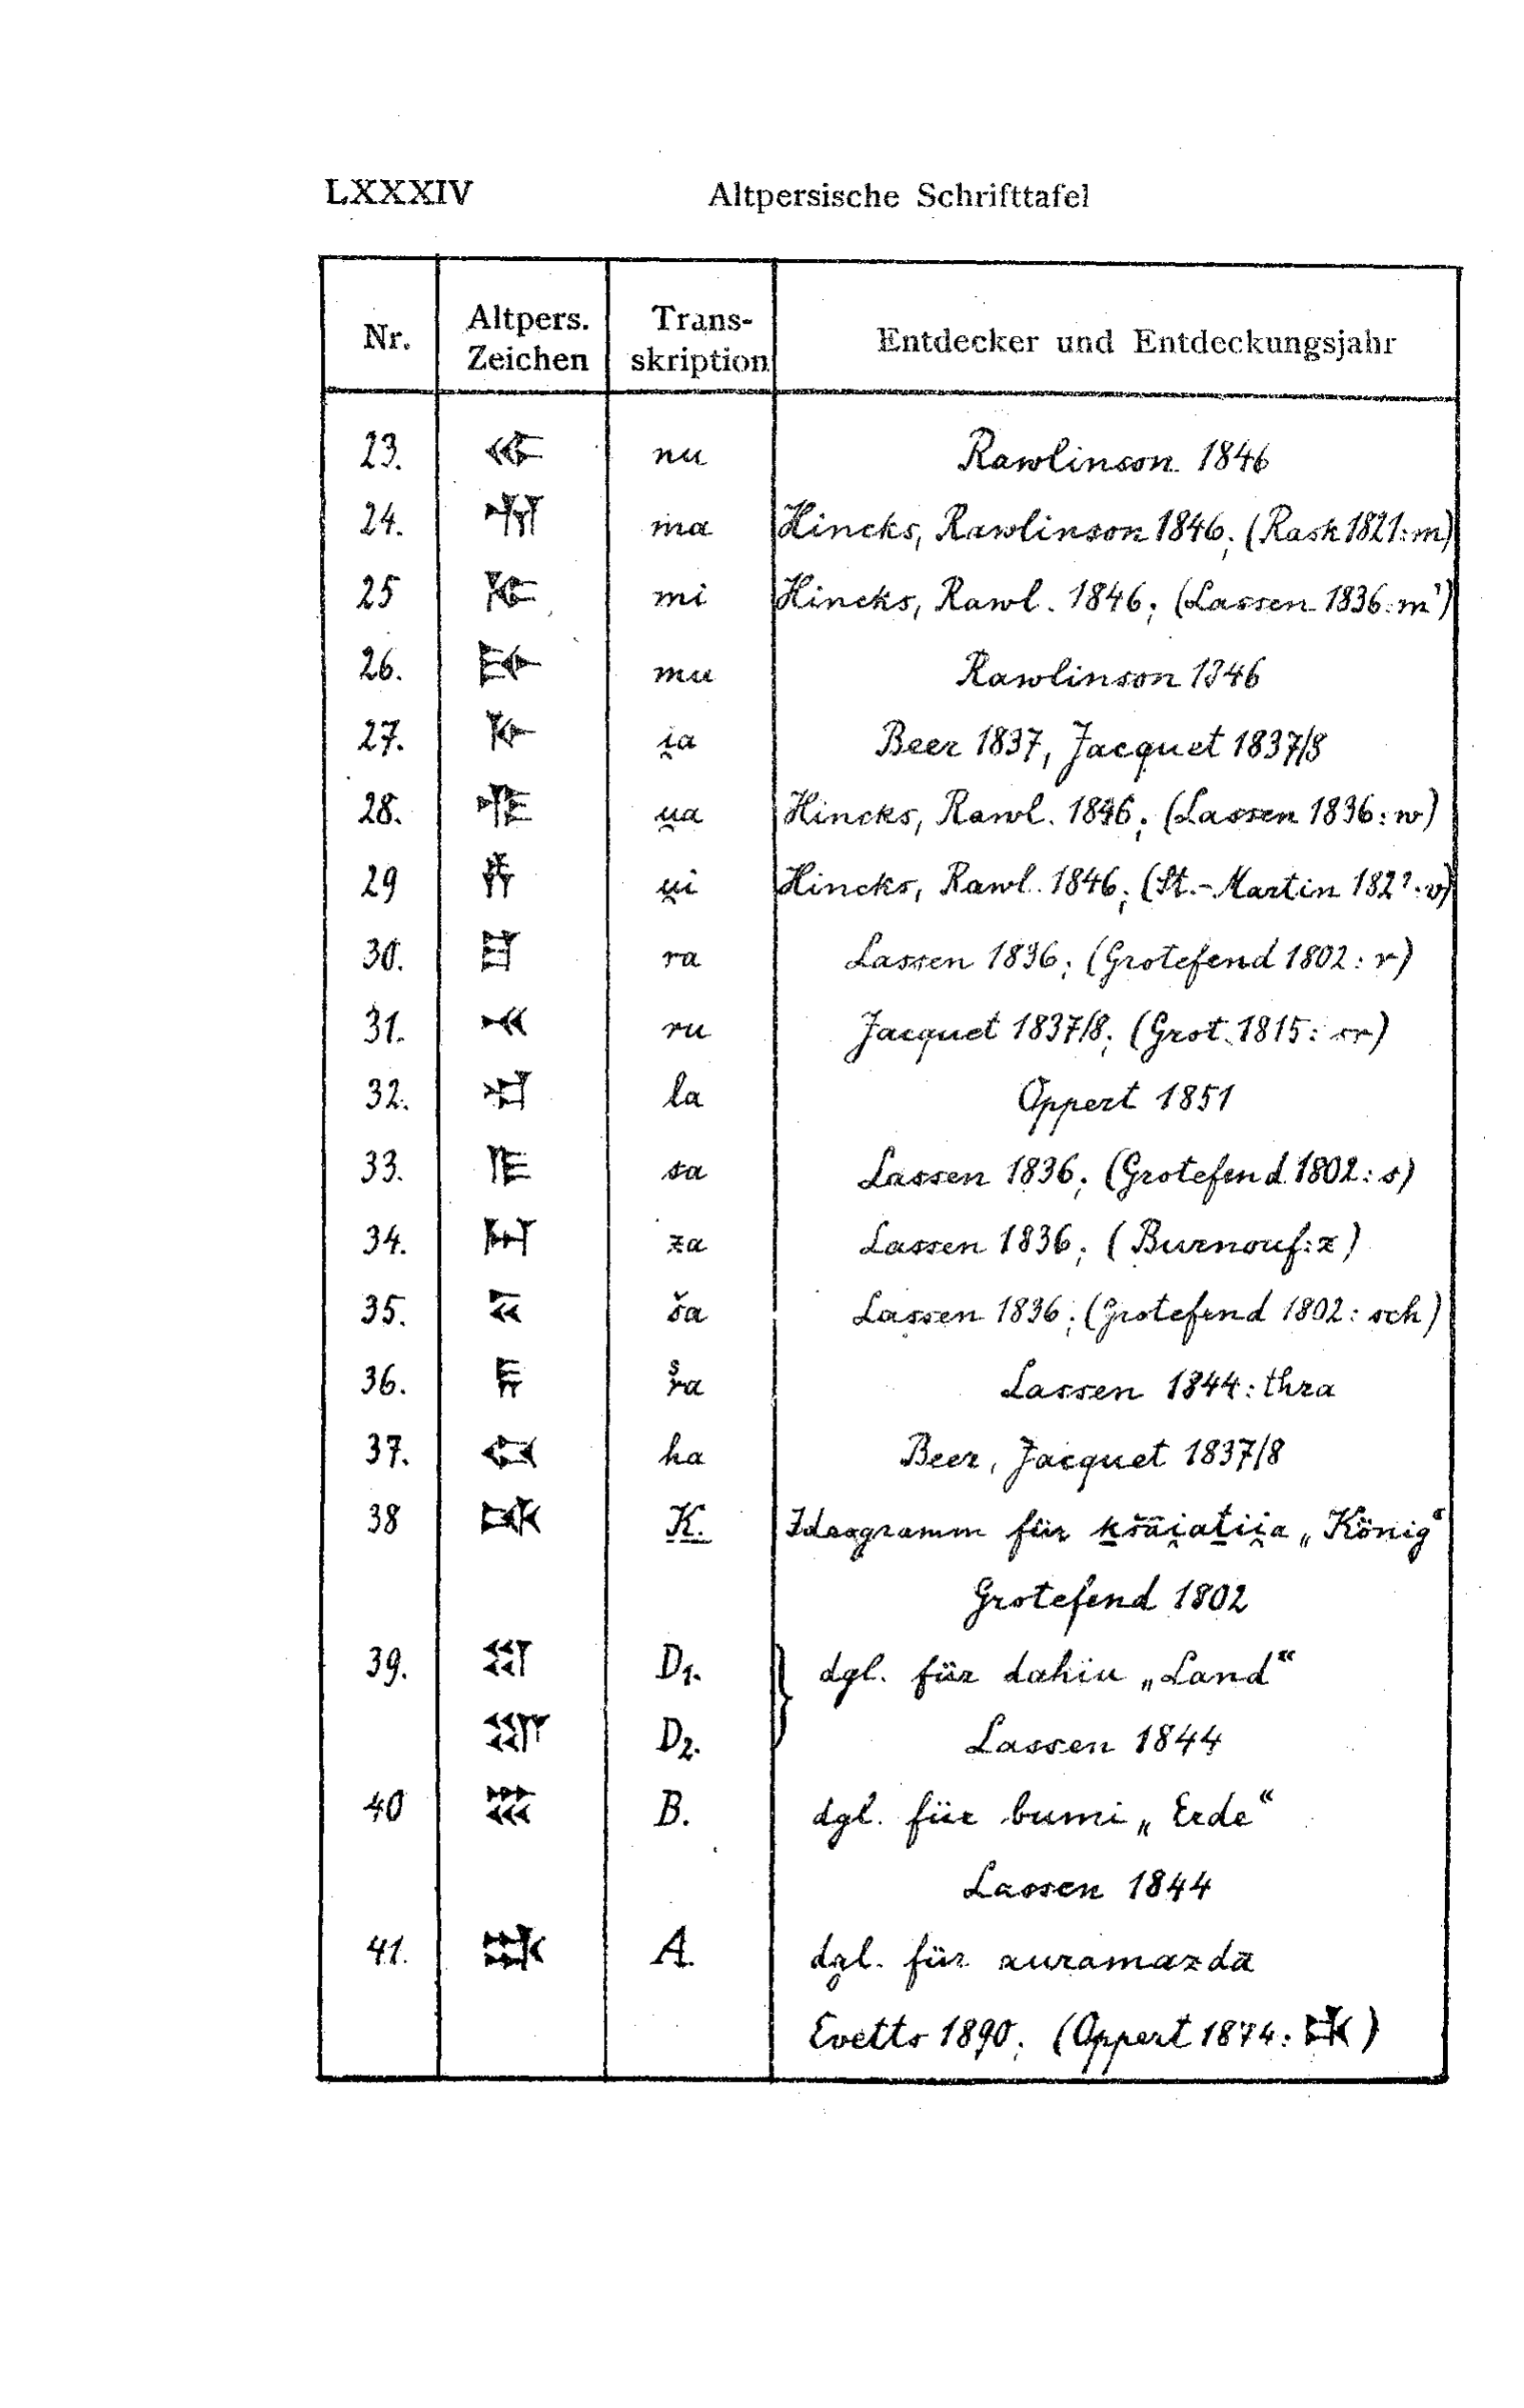 LXXXIV Altpersische Schrifttafel
Nr. Altpers. Zeichen Trans-skription Entdecker und Entdeckungsjahr
23. 𐎵 nu Rawlinson 1846
24. 𐎶 ma Hincks, Rawlinson 1846; (Rask 1821: m)
25 𐎷 mi Hincks, Rawl. 1846; (Lassen 1836: m')
26. 𐎸 mu Rawlinson 1846
27. 𐎹 i̯a Beer 1837, Jacquet 1837/8
28. 𐎺 u̯a Hincks, Rawl. 1846; (Lassen 1836: w)
29 𐎻 u̯i Hincks, Rawl. 1846; (St.-Martin 182?: v)
30. 𐎼 ra Lassen 1836; (Grotefend 1802: r)
31. 𐎽 ru Jacquet 1837/8; (Grot. 1815: sr)
32. 𐎾 la Oppert 1851
33. 𐎿 sa Lassen 1836; (Grotefend 1802: s)
34. 𐏀 za Lassen 1836; (Burnouf: z)
35. 𐏁 ša Lassen 1836; (Grotefend 1802: sch)
36. 𐏂 rͣša Lassen 1844: thra
37. 𐏃 ha Beer, Jacquet 1837/8
38 𐏋 K. Ideogramm für ḵšāi̯aṯii̯a „König“
Grotefend 1802
39. 𐏌 D1. dgl. für dahiu „Land“
𐏍 D2. Lassen 1844
40 𐏏 B. dgl. für bumi „Erde“
Lassen 1844
41. 𐏈 A. dgl. für auramazdā
Evetts 1890; (Oppert 1874: 𐏉)